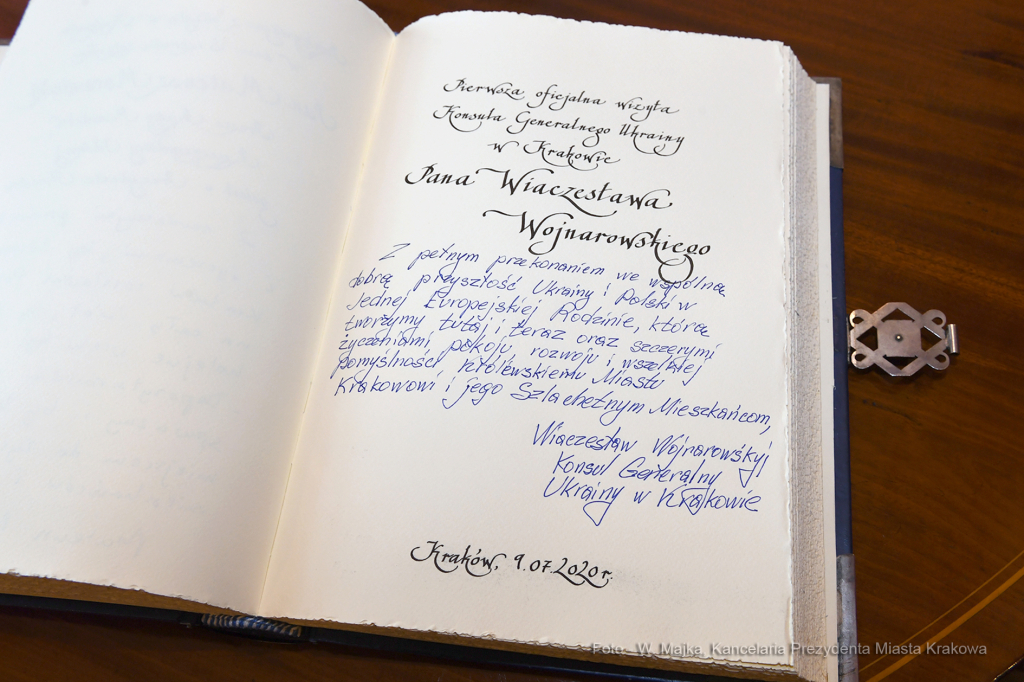 Pierwsza oficjalna wizyta
Konsula Generalnego Ukrainy
w Krakowie
Pana Wiaczesława
Wojnarowskiego
Z pełnym przekonaniem we wspólną
dobrą przyszłość Ukrainy i Polski w
Jednej Europejskiej Rodzinie, którą
tworzymy tutaj i teraz oraz szczerymi
życzeniami pokoju, rozwoju i wszelkiej
pomyślności Królewskiemu Miastu
Krakowowi i jego Szlachetnym Mieszkańcom,
Wiaczesław Wojnarowśkyj
Konsul Generalny
Ukrainy w Krakowie
Kraków, 9.07.2020 r.
Foto: W. Majka, Kancelaria Prezydenta Miasta Krakowa